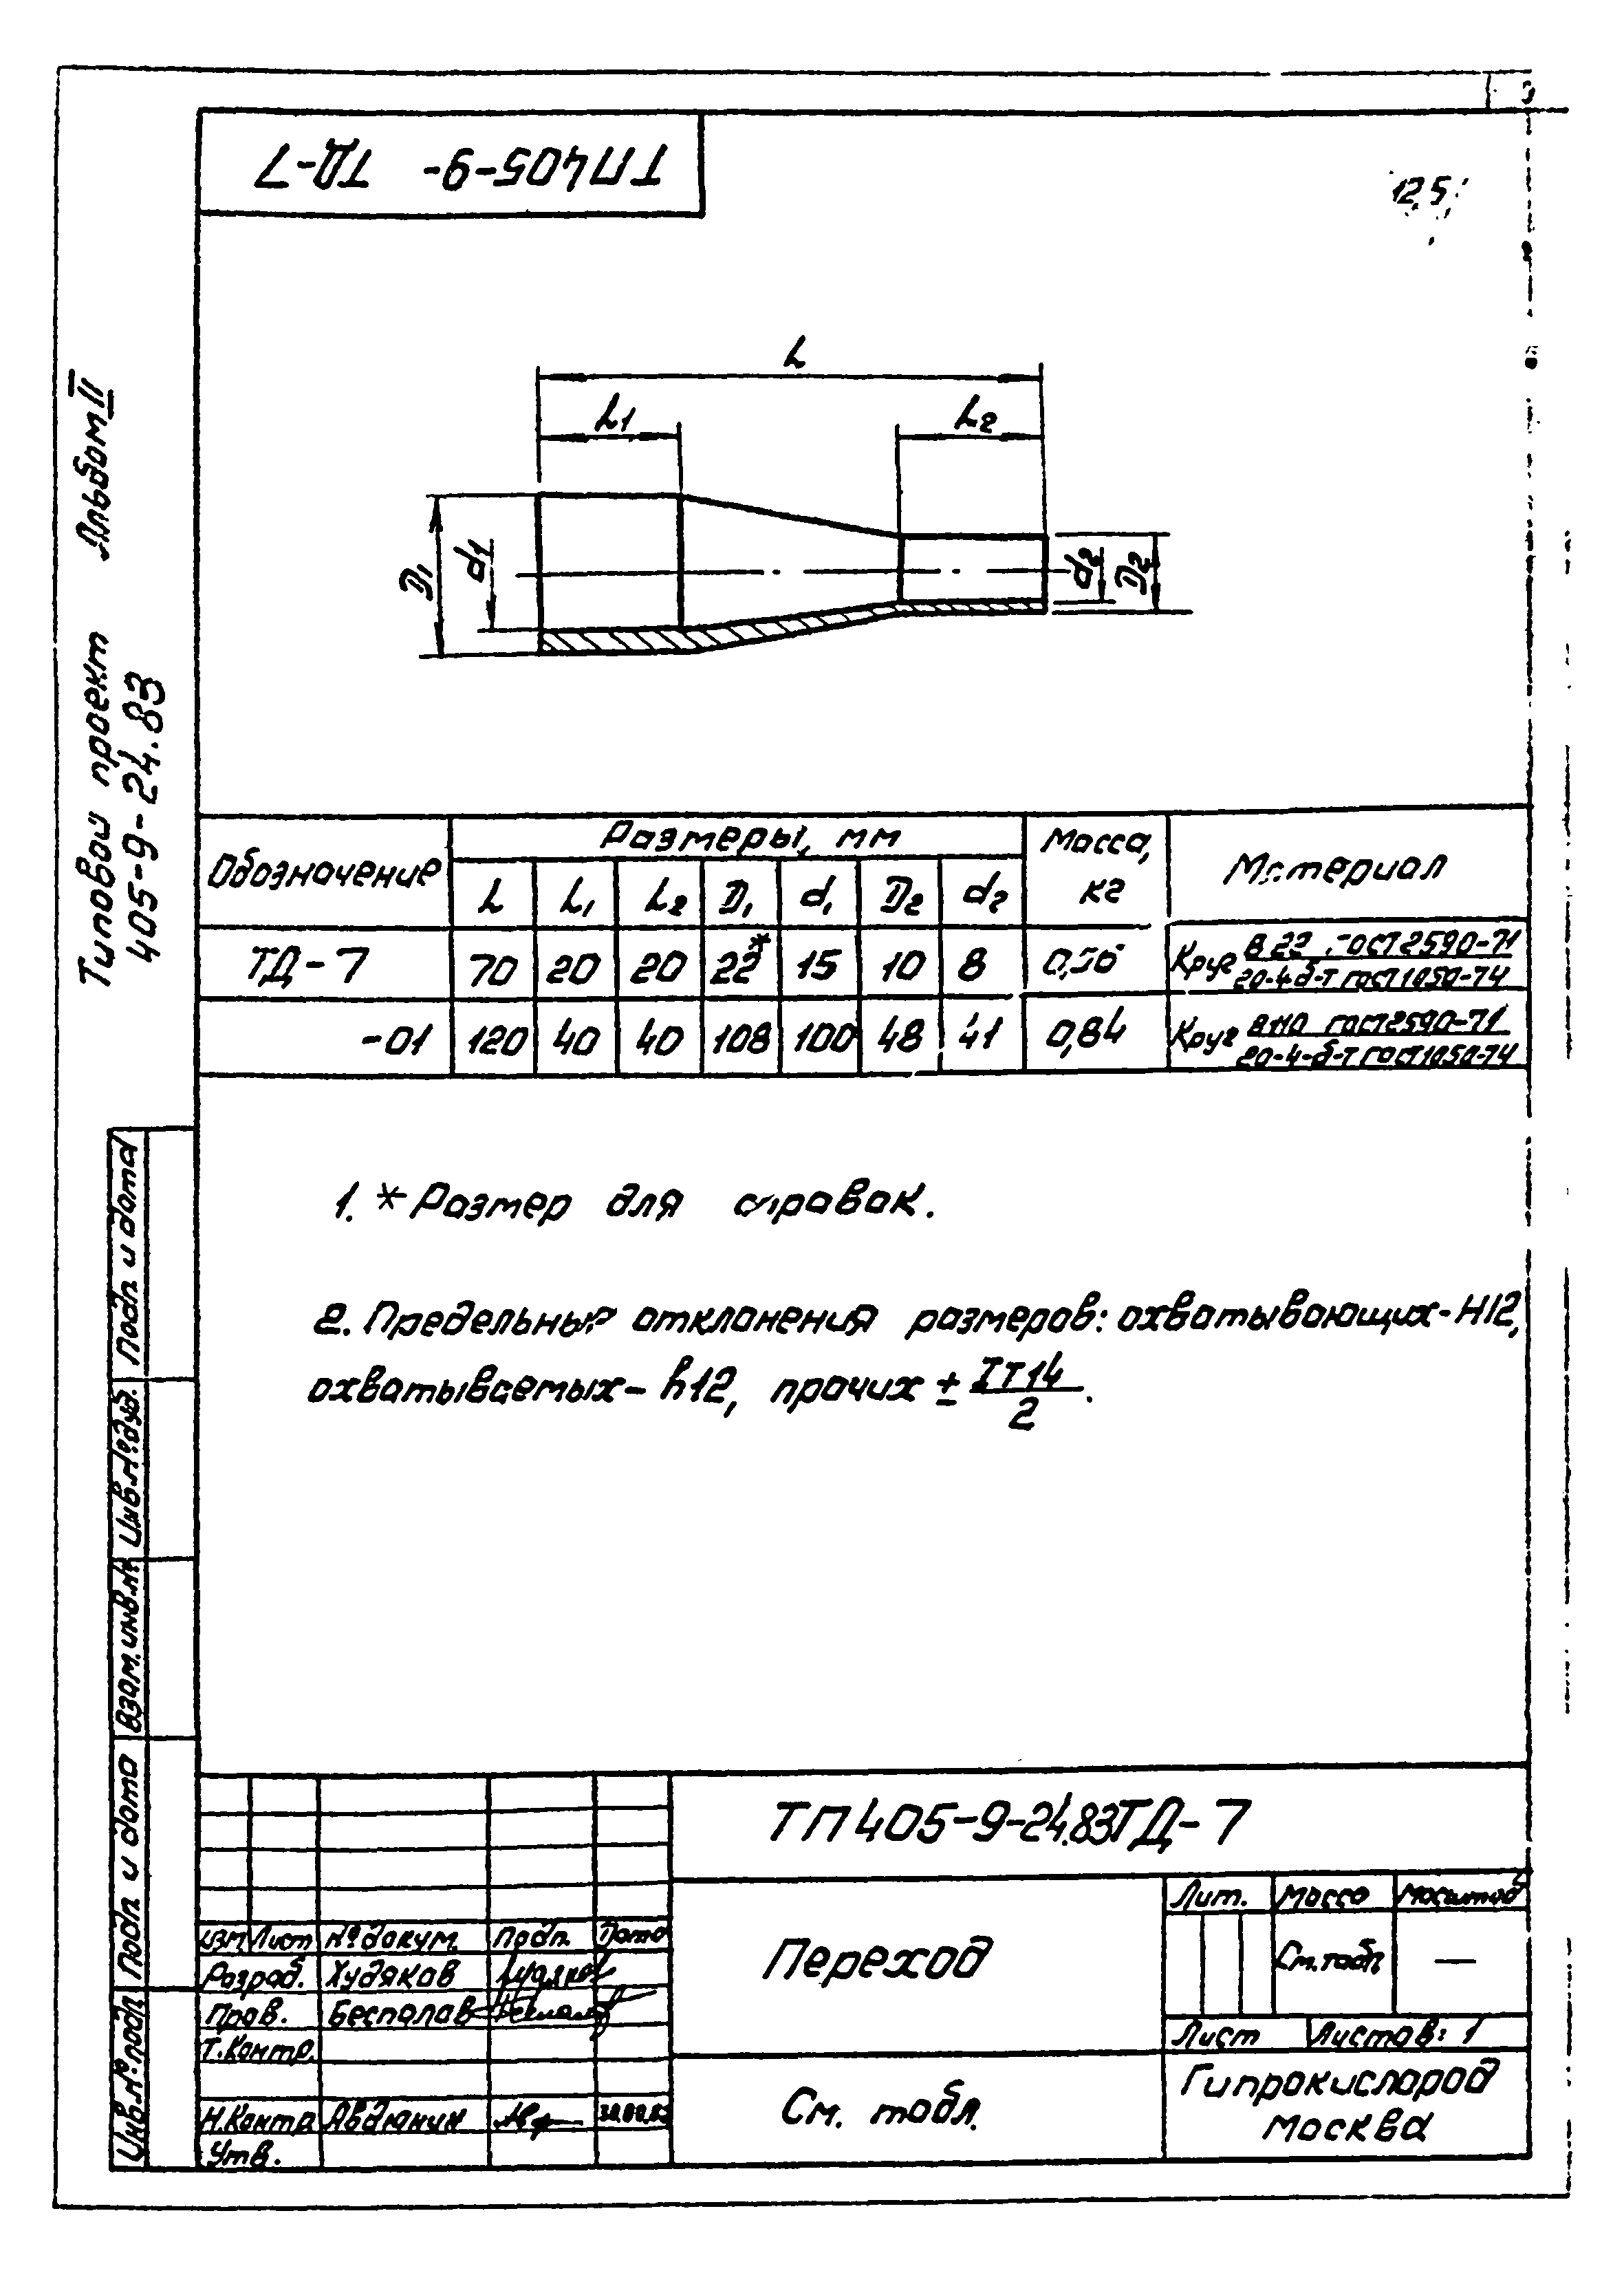 ТП405-9- ТД-7
12,5
Типовой проект Альбом II
405-9-24.83
L
L1
L2
D1
d1
d2
D2
Обозначение Размеры, мм Масса, кг Материал
L L1 L2 D1 d1 D2 d2
ТД-7 70 20 20 22* 15 10 8 Круг В 22 ГОСТ 2590-71
20-4-б-т ГОСТ 1050-74
-01 120 40 40 108 100 48 41 0,84 Круг В110 ГОСТ 2590-71
20-4-б-т ГОСТ 1050-74
1. * Размер для справок.
2. Предельные отклонения размеров: охватывающих - H12,
охватываемых - h12, прочих ± IT14/2.
Подп и дата
Инв.№ дуб.
Взам. инв.№
Подп и дата
Инв.№ подл.
ТП 405-9-24.83 ТД-7
Изм Лист № докум. Подп. Дата
Разраб. Худяков
Пров. Беспалов
Т.Контр.
Н.Контр Авдюнин
Утв.
Переход
Лит. Масса Масштаб
См. табл —
Лист Листов: 1
См. табл.
Гипрокислород
Москва